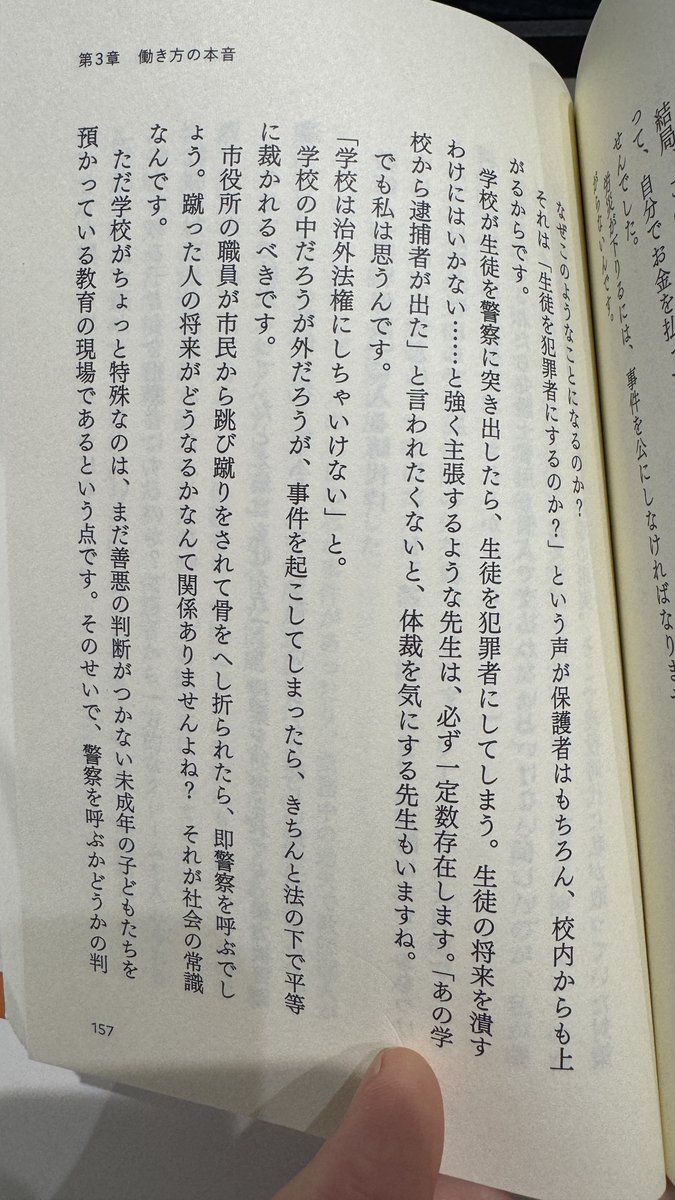 結局
って、自分でお金を払っ
せんでした。
には、事件を公にしなければなりま
がらないんです。
第3章　働き方の本音
なぜこのようなことになるのか？
それは「生徒を犯罪者にするのか？」という声が保護者はもちろん、校内からも上
がるからです。
学校が生徒を警察に突き出したら、生徒を犯罪者にしてしまう。生徒の将来を潰す
わけにはいかない……と強く主張するような先生は、必ず一定数存在します。「あの学
校から逮捕者が出た」と言われたくないと、体裁を気にする先生もいますね。
でも私は思うんです。
「学校は治外法権にしちゃいけない」と。
学校の中だろうが外だろうが、事件を起こしてしまったら、きちんと法の下で平等
に裁かれるべきです。
市役所の職員が市民から跳び蹴りをされて骨をへし折られたら、即警察を呼ぶでし
ょう。蹴った人の将来がどうなるかなんて関係ありませんよね？　それが社会の常識
なんです。
ただ学校がちょっと特殊なのは、まだ善悪の判断がつかない未成年の子どもたちを
預かっている教育の現場であるという点です。そのせいで、警察を呼ぶかどうかの判
157